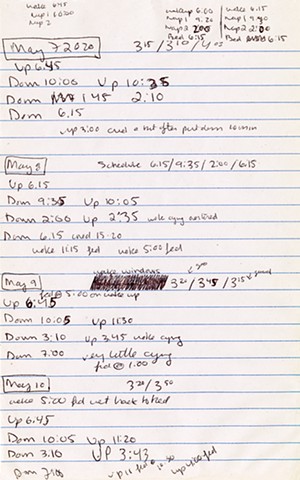 wake 6:45
nap 1 10:20
nap 2
wakeup 6.00
nap 1 9.20
nap 2
Bed 6:15
wake 6.15
nap 1 9.40
nap 2 2:00
Bed 6:15
May 7 2020 3 15/3 30/4 02
Up 6.45
Down 10:00 Up 10:35
Down 1 45 2:10
Down 6.15
up 3:00 cried a bit after put down
May 8 Schedule 6.15/9:35/2:00/6.15
Up 6.15
Down 9:35 Up 10:05
Down 2:00 Up 2 35 woke crying
Down 6.15 cried 15-20
woke 1:15 fed woke 5:00 fed
May 9 wake windows 3 20/3 45/3 15
fed @ 5:00 on wake up
Up 6:45
Down 10:05 Up 11:30
Down 3:10 Up 3.45 woke crying
Down 7.00 very little crying
fed @ 1.00
May 10 3 20/3 50
woke 5:00 fed went back to bed
Up 6.45
Down 10:05 Up 11:20
Down 3.10 UP 3:43
Down 7:00